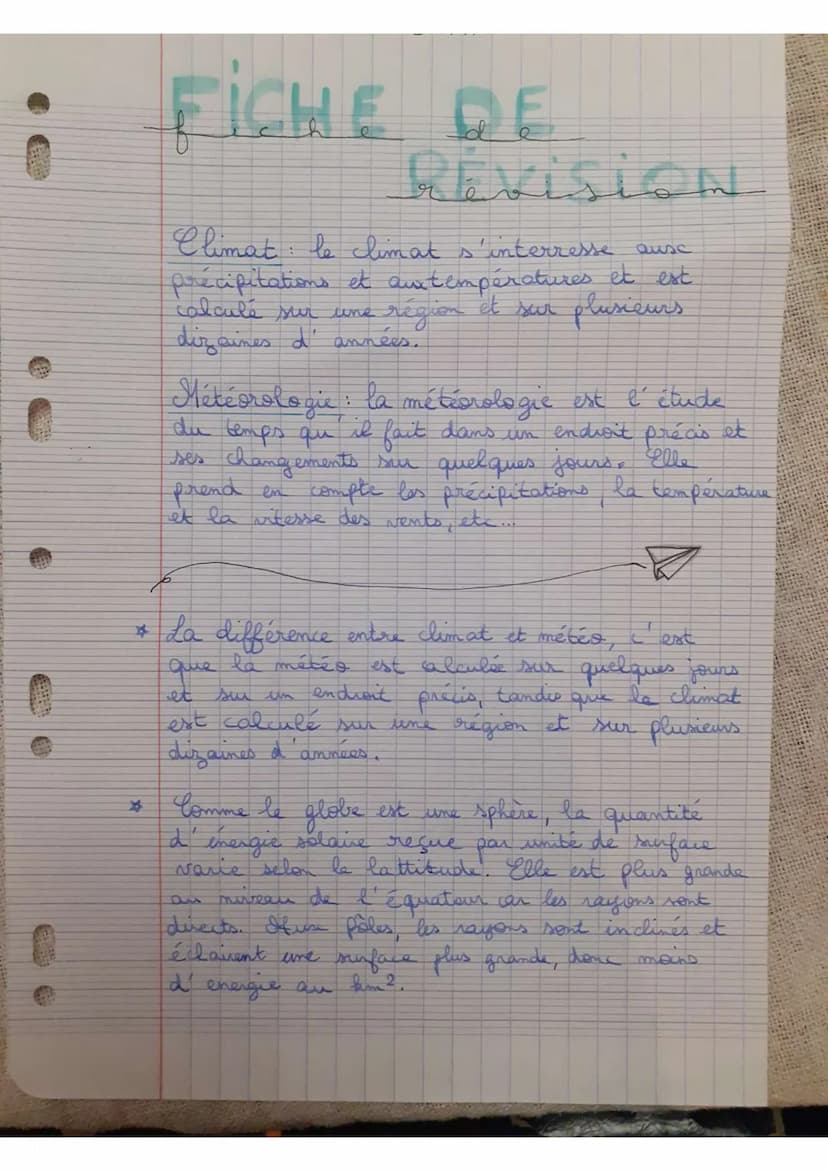 FICHE DE
fiche de
RÉVISION
révision
Climat : le climat s'interresse aux
précipitations et aux températures et est
calculé sur une région et sur plusieurs
dizaines d'années.
Météorologie : la météorologie est l'étude
du temps qu'il fait dans un endroit précis et
ses changements sur quelques jours. Elle
prend en compte les précipitations, la température
et la vitesse des vents, etc...
* La différence entre climat et météo, c'est
que la météo est calculée sur quelques jours
et sur un endroit précis, tandis que le climat
est calculé sur une région et sur plusieurs
dizaines d'années.
* Comme le globe est une sphère, la quantité
d'énergie solaire reçue par unité de surface
varie selon la lattitude. Elle est plus grande
au niveau de l'équateur car les rayons sont
directs. Aux pôles, les rayons sont inclinés et
éclairent une surface plus grande, donc moins
d'energie au km².